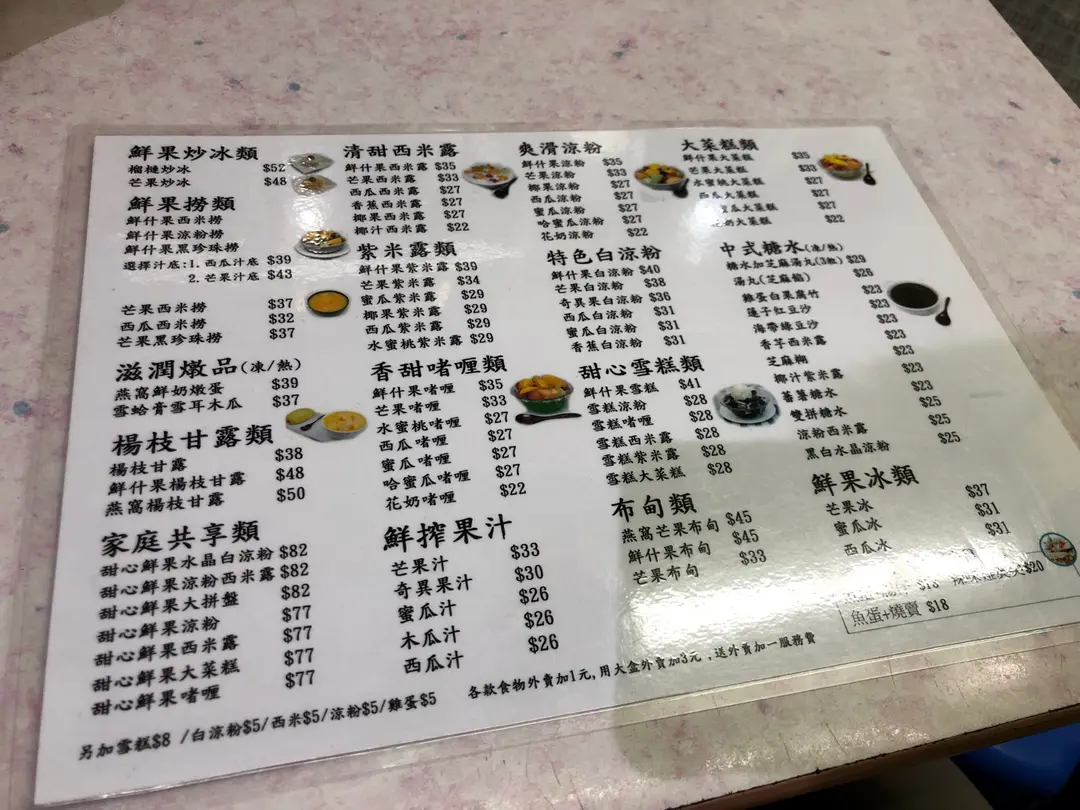 鮮果炒冰類
榴槤炒冰 $52
芒果炒冰 $48
鮮果撈類
鮮什果西米撈
鮮什果涼粉撈
鮮什果黑珍珠撈
選擇汁底:1.西瓜汁底 $39
2.芒果汁底 $43
芒果西米撈 $37
西瓜西米撈 $32
芒果黑珍珠撈 $37
滋潤燉品(凍/熱)
燕窩鮮奶燉蛋 $39
雪蛤膏雪耳木瓜 $37
楊枝甘露類
楊枝甘露 $38
鮮什果楊枝甘露 $48
燕窩楊枝甘露 $50
家庭共享類
甜心鮮果水晶白涼粉 $82
甜心鮮果涼粉西米露 $82
甜心鮮果大拼盤 $82
甜心鮮果涼粉 $77
甜心鮮果西米露 $77
甜心鮮果大菜糕 $77
甜心鮮果啫喱 $77
清甜西米露
鮮什果西米露 $35
芒果西米露 $33
西瓜西米露 $27
香蕉西米露 $27
椰果西米露 $27
椰汁西米露 $22
紫米露類
鮮什果紫米露 $39
芒果紫米露 $34
蜜瓜紫米露 $29
椰果紫米露 $29
西瓜紫米露 $29
水蜜桃紫米露 $29
香甜啫喱類
鮮什果啫喱 $35
芒果啫喱 $33
水蜜桃啫喱 $27
西瓜啫喱 $27
蜜瓜啫喱 $27
哈蜜瓜啫喱 $27
花奶啫喱 $22
鮮搾果汁
芒果汁 $33
奇異果汁 $30
蜜瓜汁 $26
木瓜汁 $26
西瓜汁 $26
爽滑涼粉
鮮什果涼粉 $35
芒果涼粉 $33
椰果涼粉 $27
西瓜涼粉 $27
蜜瓜涼粉 $27
哈蜜瓜涼粉 $27
花奶涼粉 $22
特色白涼粉
鮮什果白涼粉 $40
芒果白涼粉 $38
奇異果白涼粉 $36
西瓜白涼粉 $31
蜜瓜白涼粉 $31
香蕉白涼粉 $31
甜心雪糕類
鮮什果雪糕 $41
雪糕涼粉 $28
雪糕啫喱 $28
雪糕西米露 $28
雪糕紫米露 $28
雪糕大菜糕 $28
布甸類
燕窩芒果布甸 $45
鮮什果布甸 $45
芒果布甸 $33
大菜糕類
鮮什果大菜糕 $35
芒果大菜糕 $33
水蜜桃大菜糕 $27
西瓜大菜糕 $27
蜜瓜大菜糕 $27
花奶大菜糕 $22
中式糖水(凍/熱)
糖水加芝麻湯丸(3粒) $29
湯丸(芝麻餡) $26
雞蛋白果腐竹 $23
蓮子紅豆沙 $23
海帶綠豆沙 $23
香芋西米露 $23
芝麻糊 $23
椰汁紫米露 $23
蕃薯糖水 $23
雙拼糖水 $25
涼粉西米露 $25
黑白水晶涼粉 $25
鮮果冰類
芒果冰 $37
蜜瓜冰 $31
西瓜冰 $31
$18 $20
魚蛋+燒賣 $18
另加雪糕$8 /白涼粉$5/西米$5/涼粉$5/雞蛋$5
各款食物外賣加1元,用大盒外賣加3元 ,送外賣加一服務費